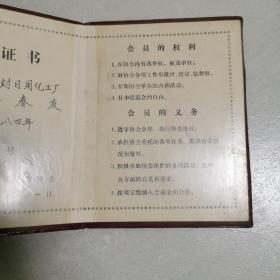 证书
封日用化工厂
春友
八四年
会员的权利
1.在协会内有选举权、被选举权。
2.对协会各项工作有批评、建议、监督权。
3.参加协会举办的各种活动。
4.有申请退会的自由。
会员的义务
1.遵守协会章程、执行协会决议。
2.承担协会委托的各项任务，
况和资料。
3.积极参加协会组织的各项活动，
各方面的意见和要求。
4.按规定缴纳入会基金和会费。